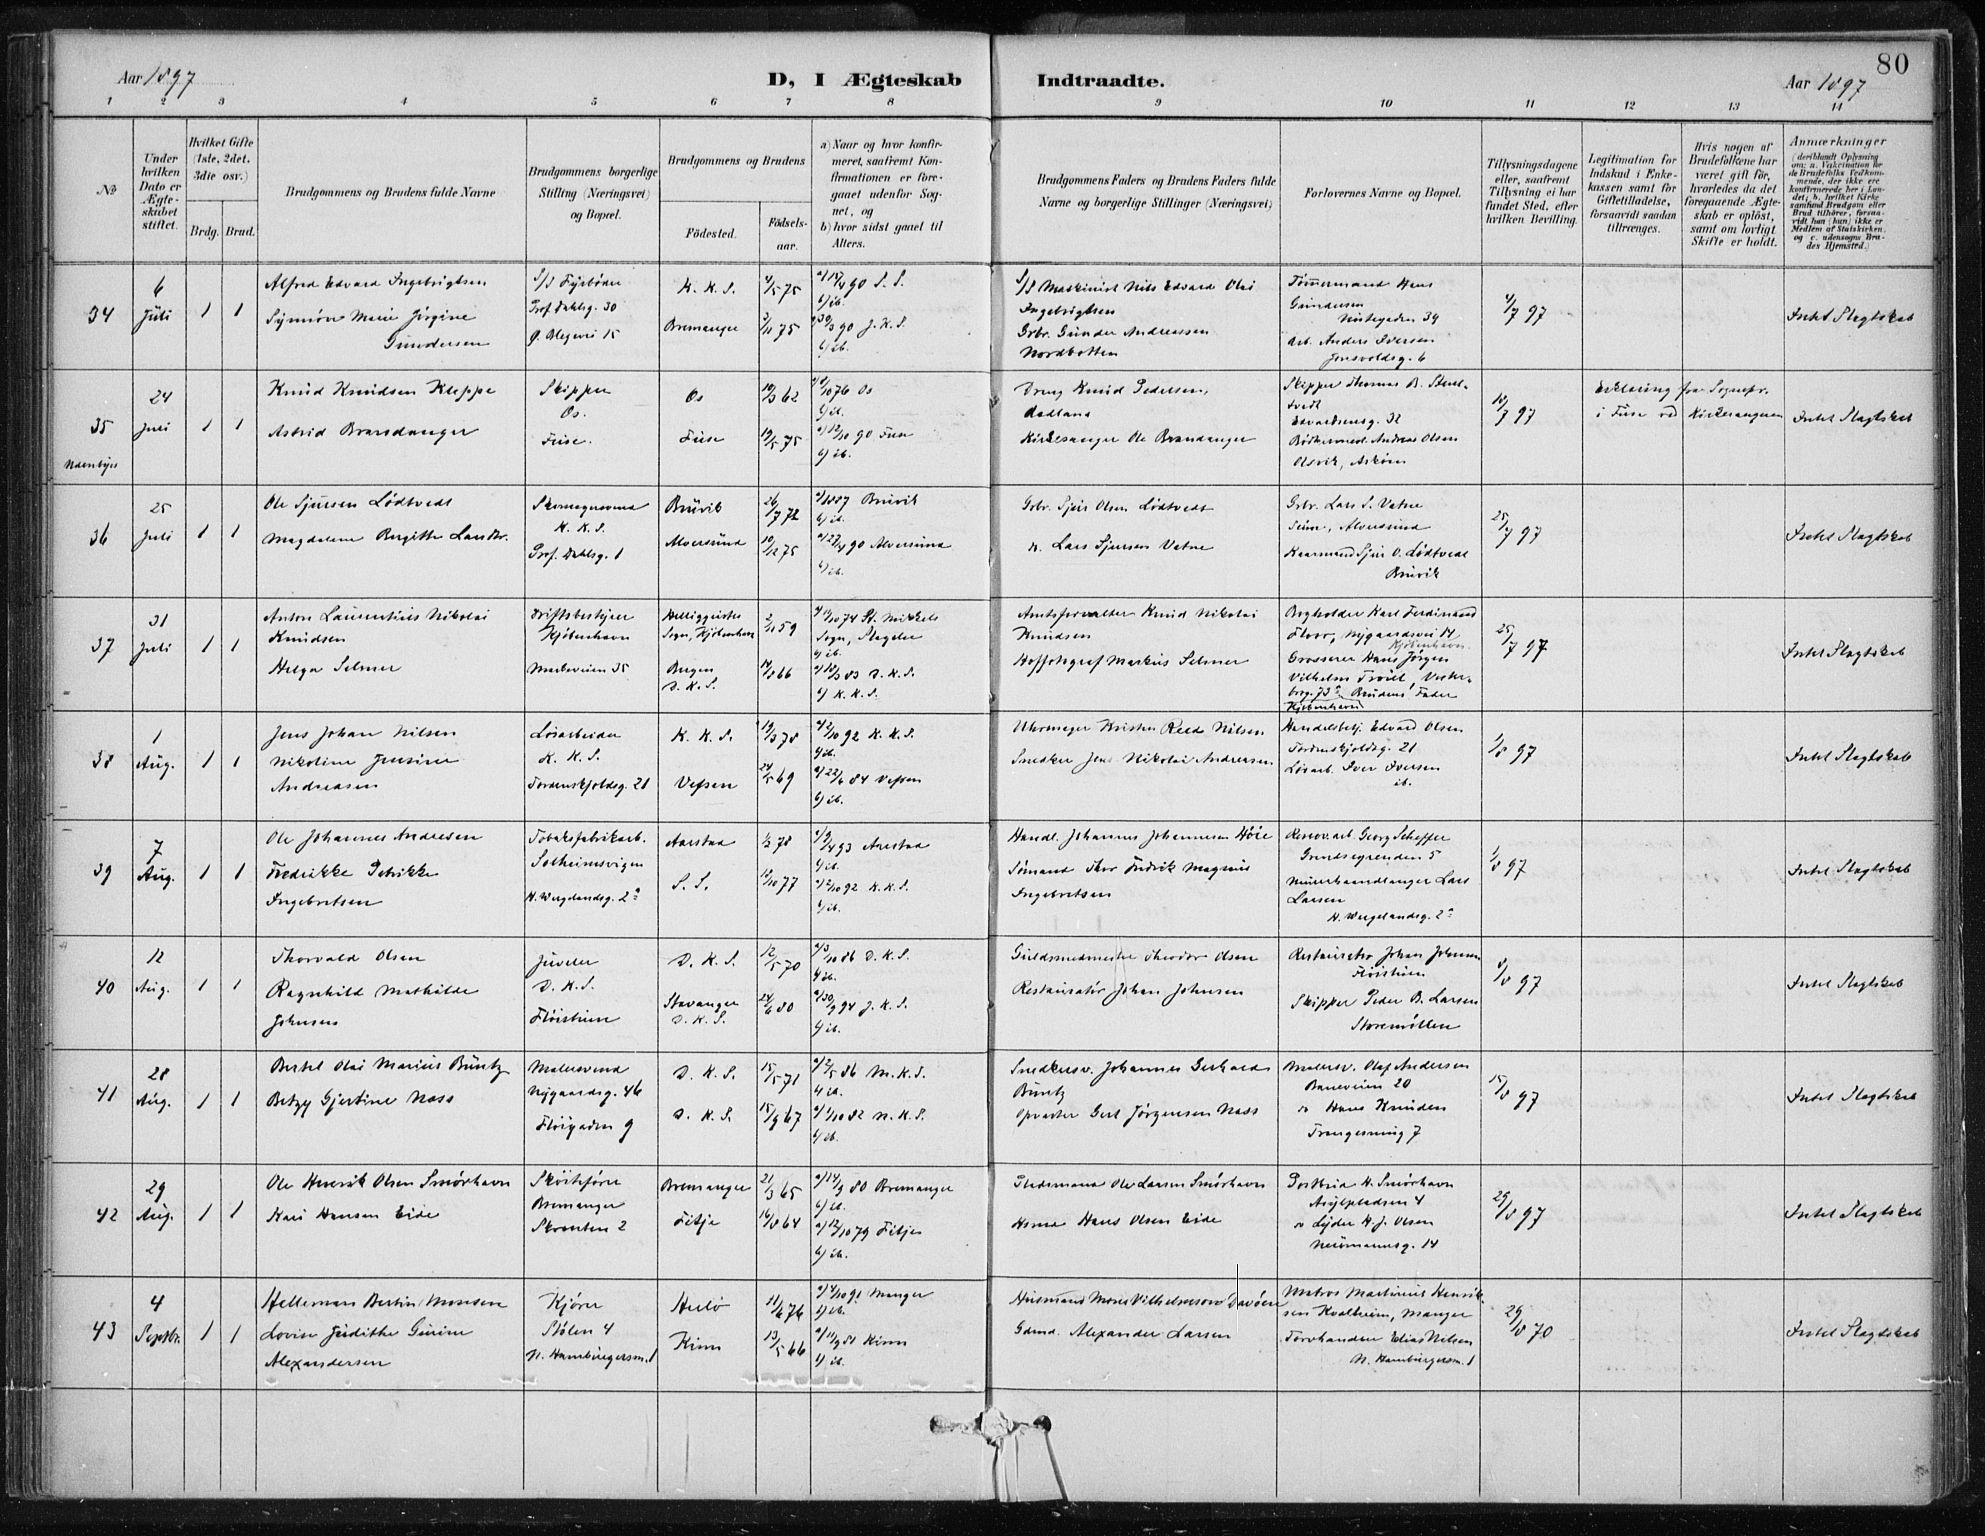 80
Aar 1897
D, I Ægteskab
Indtraadte.
Aar 1897
1 2 3 4 5 6 7 8 9 10 11 12 13 14
№
Under hvilken Dato er Ægteskabet stiftet.
Hvilket Gifte (1ste, 2det, 3die osv.)
Brdg. Brud.
Brudgommens og Brudens fulde Navne
Brudgommens borgerlige Stilling (Næringsvei) og Bopæl.
Brudgommens og Brudens
Födested. Födselsaar.
a) Naar og hvor konfirmeret, saafremt Konfirmationen er foregaaet udenfor Sognet, og
b) hvor sidst gaaet til Alters.
Brudgommens Faders og Brudens Faders fulde Navne og borgerlige Stillinger (Næringsvei)
Forlovernes Navne og Bopæl.
Tillysningsdagene eller, saafremt Tillysning ei har fundet Sted, efter hvilken Bevilling.
Legitimation for Indskud i Enkekassen samt for Giftetilladelse, forsaavidt saadan tiltrænges.
Hvis nogen af Brudefolkene har været gift för, hvorledes da det foregaaende Ægteskab er oplöst, samt om lovligt Skifte er holdt.
Anmærkninger
34
6 Juli
1 1
Alfred Edvard Ingebrigtsen
Synnöve Marie Jörgine
Gundersen
S/S Fyrböder
Prof. Dahlsg. 30
Ö. Blegevei 15
K. K. S.
Bremanger
4/5 75
3/11 75
b) ib.
90 J. K. S.
b) ib.
S/S Maskinist Nils Edvard Olai
Ingebrigtsen
Gbr. Gunder Andreassen
Nordbotten
Tømmermand Hans
Gundersen
Nöstegaden 39
Arb. Anders Iversen
Jonsvoldsg. 6
4/7 97
Intet Slagtskab
35
Udenbyes
24 Juli
1 1
Knud Knudsen Kleppe
Astrid Brandanger
Skipper
Os.
Fuse.
Os
Fuse
19/3 62
19/5 75
a) 1/10 76 Os
b) ib.
a) 12/10 90 Fuse
b) ib.
Drug Knud Pedersen,
Kirkesanger Ole Brandanger
Skipper Thomas B.
Edvardsensg. 32
Bödkermed. Andreas Olsen
Olsvik, Asköen
18/7 97
Erklæring fra Sognepr.
i Fuse ved Kirkesangeren
Intet Slagtskab
36
25 Juli
1 1
Ole Sjursen Lödtvedt
Magdalene Bergitte Larsdr.
Skomagersvend
K. K. S.
Prof. Dahlsg. 1
Bruvik
Alversund
26/7 72
10/12 75
a) 1887 Bruvik
b) ib.
a) 27/4 90 Alversund
b) ib.
Gbr. Sjur Olsen Lödtvedt
" Lars Sjursen Vatne
Gbr. Lars S. Vatne
Seim, Alversund
Kaarmand Sjur O. Lödtvedt
Bruvik
25/7 97
Intet Slagtskab
37
31 Juli
1 1
Anton Laurentius Nikolai
Knudsen
Helga Selmer
Driftsbestyrer
Kjöbenhavn
Markeveien 35
Helliggeistes
Sogn, Kjöbenhavn
Bergen
D. K. S.
2/11 59
14/8 66
a) 11/10 74 St. Mikkels
Sogn, Slagelse
b) ib.
a) 18/3 83 D. K. S.
b) K. K. S.
Amtsforvalter Knud Nikolai
Knudsen
Hoffotograf Markus Selmer
Bogholder Karl Ferdinand
Floor, Nygaardsvei 14
Kjöbenhavn
Grosserer Hans Jörgen
Vilhelm Troiel, Vester-
brog. 73a, Brudens Fader
Kjöbenhavn
25/7 97
Intet Slagtskab
38
1 Aug.
1 1
Jens Johan Nilsen
Nikoline Jensine
Andreasen
Lösarbeider
K. K. S.
Tordenskjoldsg. 21
K. K. S.
Vefsen
19/3 78
24/5 69
a) 2/10 92 K. K. S.
b) ib.
a) 22/6 84 Vefsen
b) ib.
Uhrmager Kristen Reed Nilsen
Snedker Jens Nikolai Andreasen
Handelsbetj. Edvard Olsen
Tordenskjoldsg. 21
Lösarb. Iver Iversen
ib.
1/8 97
Intet Slagtskab
39
7 Aug.
1 1
Ole Johannes Andresen
Fredrikke Petrikke
Ingebretsen
Tobaksfabrikarb.
Solheimsvigen
H. Wergelandsg. 2a
Aarstad
S. S.
1/3 78
12/10 77
a) 9/4 93 Aarstad
b) ib.
a) 2/10 92 K. K. S.
b) ib.
Handl. Johannes Johannesen Höie
Sömand Thor Fredrik Magnus
Ingebretsen
Renov. arb. Georg Scheffer
Grundsegrenden 5
Murerhaandlanger Lars
Larsen
H. Wergelandsg. 2a
1/8 97
Intet Slagtskab
40
12 Aug.
1 1
Thorvald Olsen
Ragnhild Mathilde
Johnsen
Juveler
D. K. S.
Flöistuen
D. K. S.
Stavanger
D. K. S.
12/5 70
24/6 80
a) 3/10 86 D. K. S.
b) ib.
a) 30/9 94 J. K. S.
b) ib.
Guldsmedmester Theodor Olsen
Restauratör Johan Johnsen
Restauratör Johan Johnsen
Flöistuen
Skipper Peder B. Larsen
Storemöllen
8/8 97
Intet Slagtskab
41
28 Aug.
1 1
Bertel Olai Marius Büntz
Betzy Gjertine Næss
Malersvend
Nygaardsg. 46
Flöigaden 9
D. K. S.
D. K. S.
15/5 71
15/9 67
a) 2/5 86 M. K. S.
b) ib.
a) 1/10 82 N. K. S.
b) ib.
Snedkersv. Johannes Gerhard
Büntz
Opvarter Gert Jörgensen Næss
Malersv. Olaf Andersen
Baneveien 20
" Hans Knudsen
Trangesmug 7
15/8 97
Intet Slagtskab
42
29 Aug.
1 1
Ole Henrik Olsen Smörhavn
Kari Hansen Eide
Sköiteförer
Bremanger
Skranten 2
Bremanger
Fitje
21/3 65
16/8 64
a) 14/9 80 Bremanger
b) ib.
a) 12/10 79 Fitje
b) ib.
Pladsmand Ole Larsen Smörhavn
Hsmd Hans Olsen Eide
Postbud H. Smörhavn
Asylpladsen 4
" Lyder H. J. Olsen
Neumannsg. 14
29/8 97
Intet Slagtskab
43
4 Septbr.
1 1
Hellemar Bertin Monsen
Lovise Judithe Gurine
Alexandersen
Kjörer
Stölen 4
N. Hamburgersm. 1
Herlö
Kinn
11/6 76
13/5 66
a) 4/10 91 Manger
b) ib.
a) 11/9 81 Kinn
b) ib.
Husmand Mons Vilhelmsen
Gdmd. Alexander Larsen
Matros Martinus Henrik-
sen Kvalheim, Manger
Torvhandler Elias Nilsen
N. Hamburgersm. 1
29/8 70
Intet Slagtskab